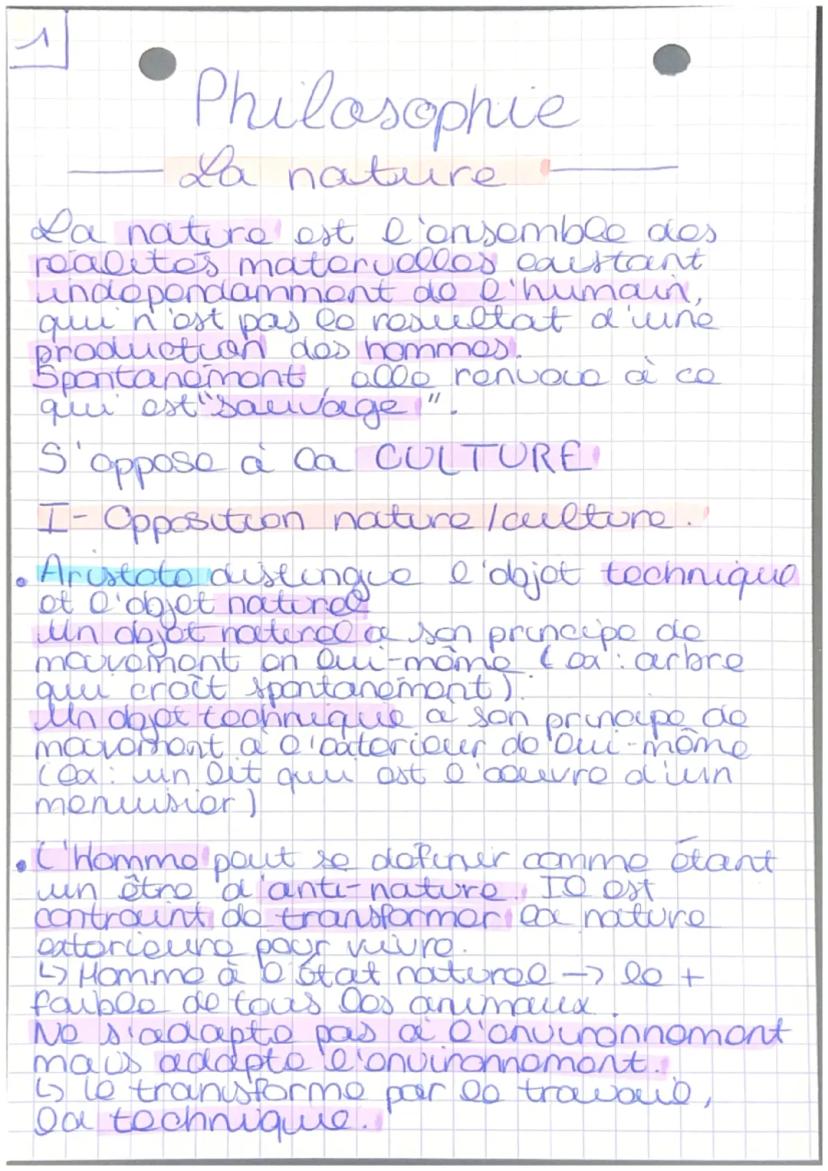 1
Philosophie
La nature
La nature est l'ensemble des
réalités matérielles existant
indépendamment de l'humain,
qui n'est pas le résultat d'une
production des hommes.
Spontanément, elle renvoie à ce
qui est "sauvage".
S'oppose à la CULTURE
I- Opposition nature/culture.
• Aristote distingue l'objet technique
et l'objet naturel
Un objet naturel a son principe de
mouvement en lui-même (ex : arbre
qui croît spontanément).
Un objet technique a son principe de
mouvement à l'extérieur de lui-même
(ex : un lit qui est l'oeuvre d'un
menuisier)
• L'Homme peut se définir comme étant
un être d'anti-nature. Il est
contraint de transformer la nature
extérieure pour vivre.
↳ Homme à l'état naturel → le +
faible de tous les animaux.
Ne s'adapte pas à l'environnement
mais adapte l'environnement.
↳ le transforme par le travail,
la technique.